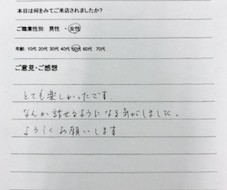 本日は何をみてご来店されましたか?
ご職業性別 男性 ・ 女性
年齢 10代 20代 30代 40代 50代 60代 70代
ご意見・ご感想
とても楽しかったです
なんか話せるようになる気がしました。
よろしくお願いします